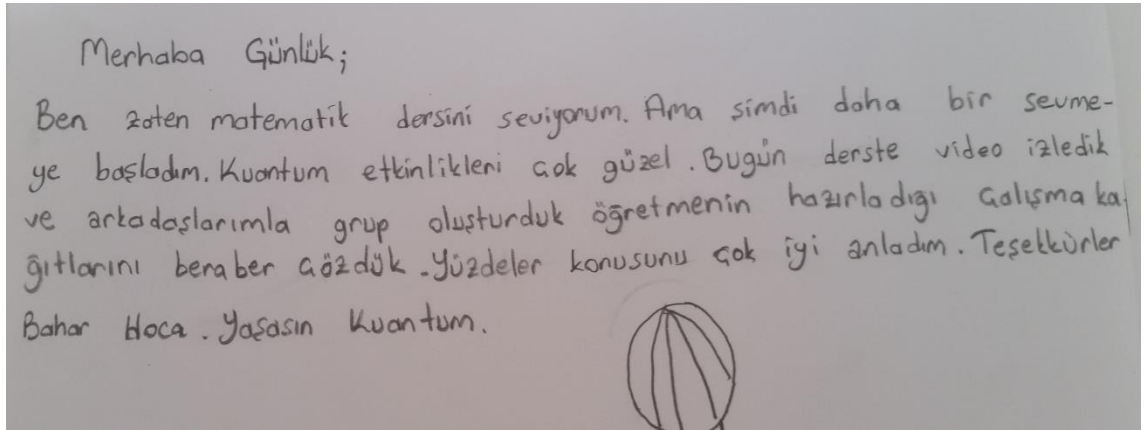 Merhaba Günlük;
Ben zaten matematik dersini seviyorum. Ama simdi daha bir sevme-
ye başladım. Kuantum etkinlikleri çok güzel. Bugün derste video izledik
ve arkadaşlarımla grup oluşturduk öğretmenin hazırladığı çalışma ka-
ğıtlarını beraber çözdük. Yüzdeler konusunu çok iyi anladım. Teşekkürler
Bahar Hoca. Yaşasın Kuantum.